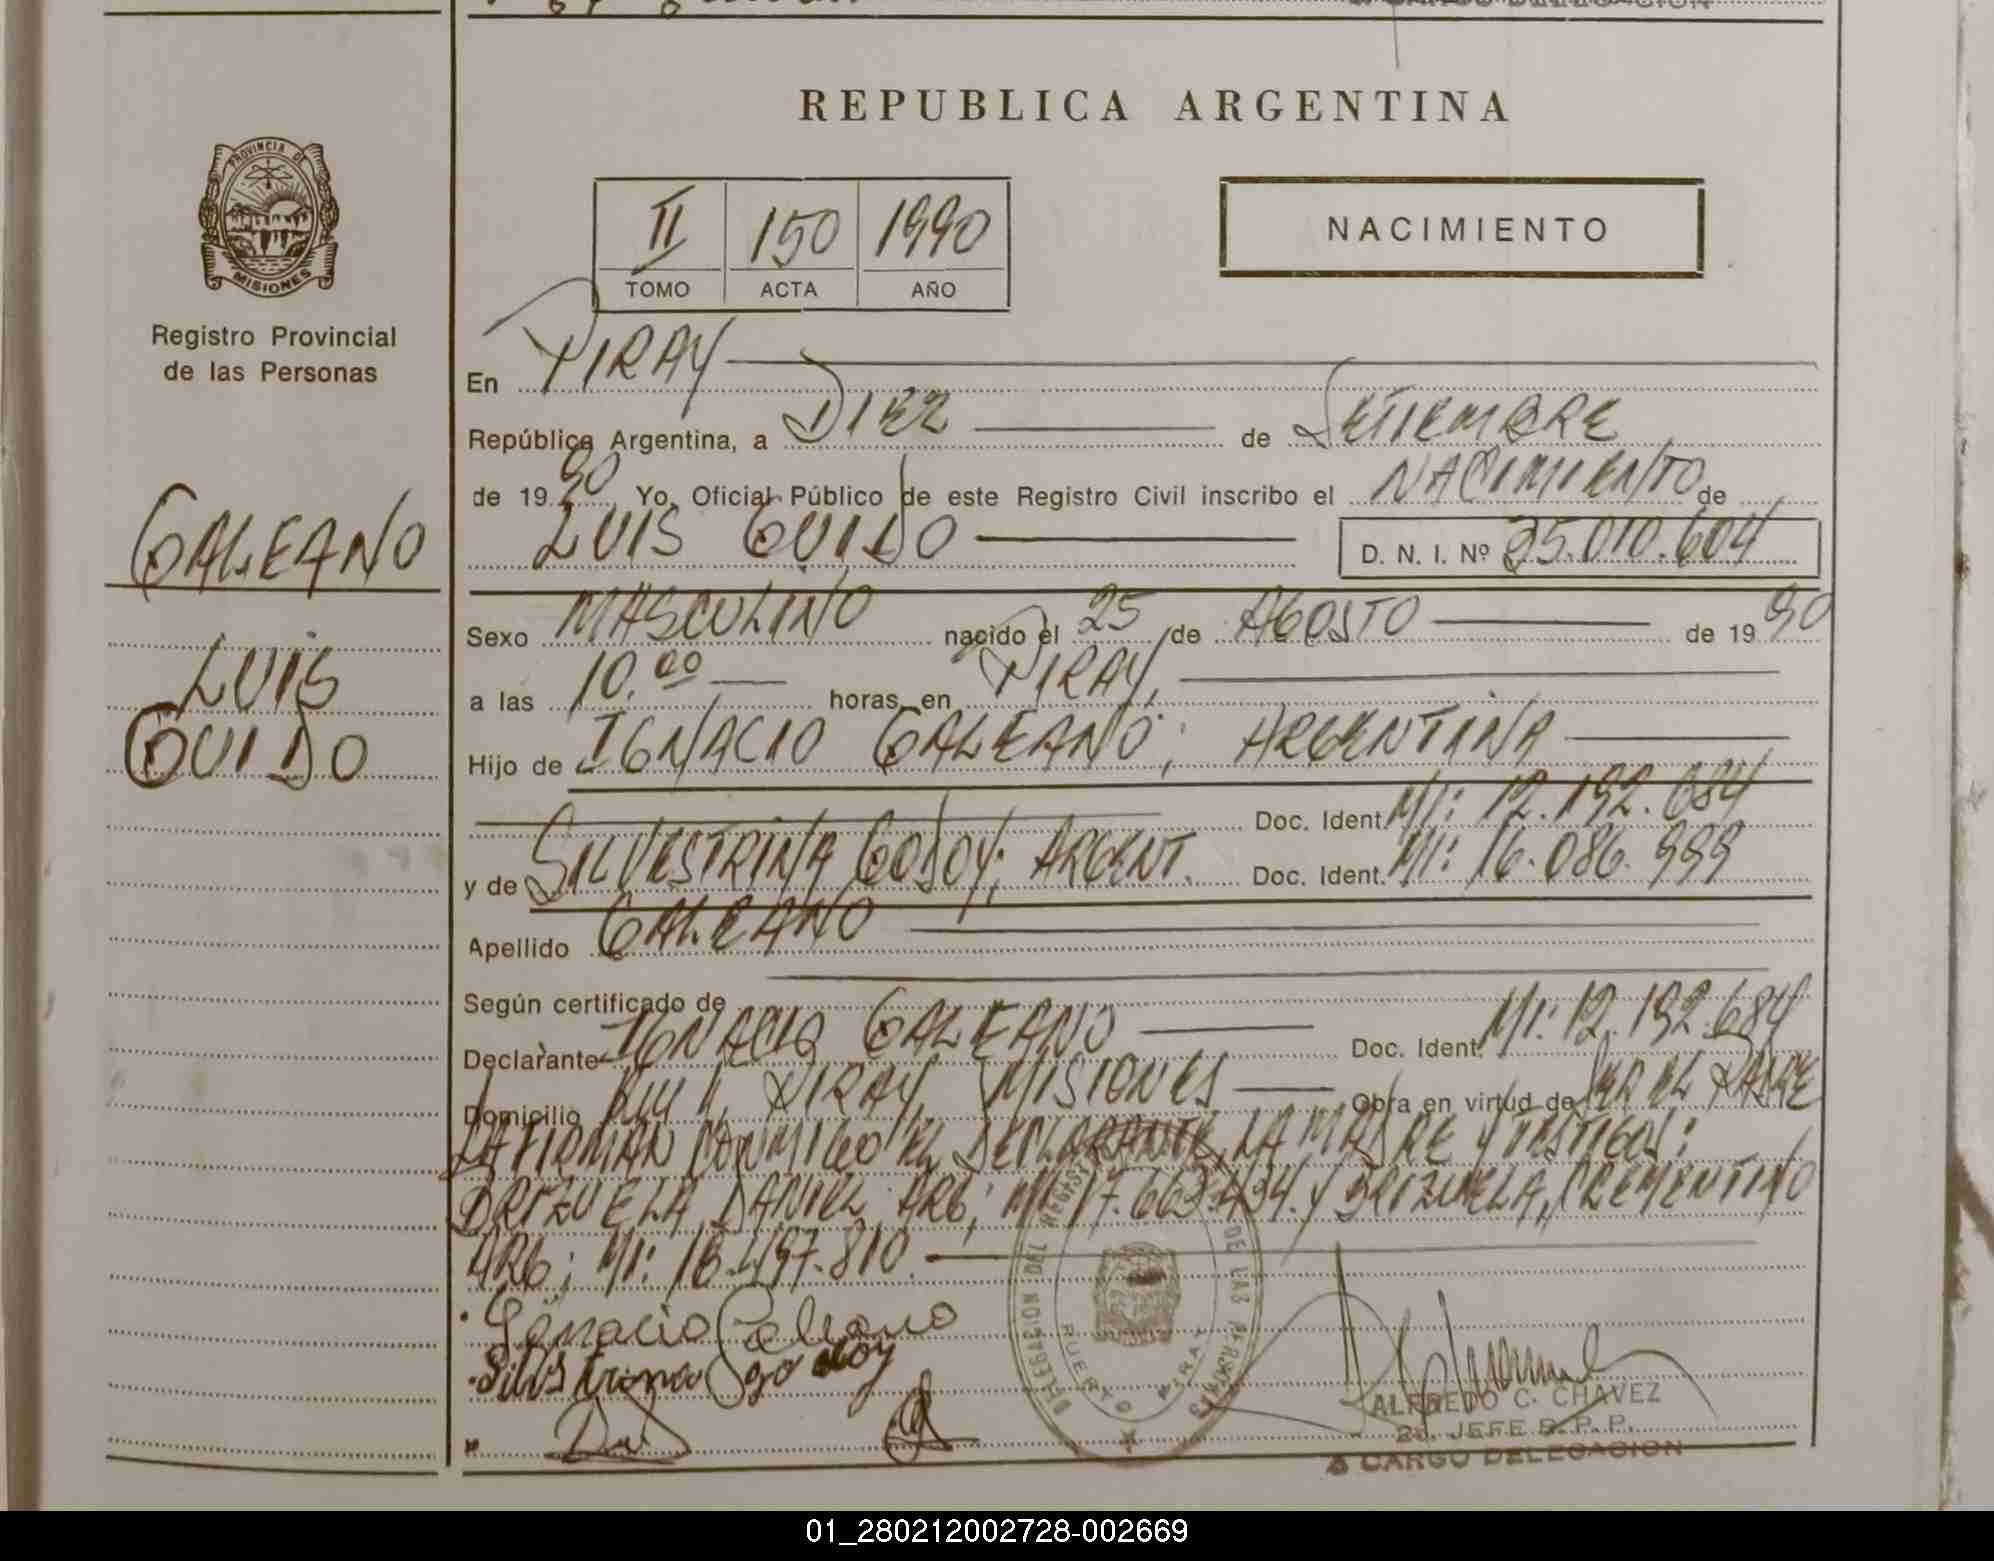 REPUBLICA ARGENTINA
PROVINCIA DE
MISIONES
Registro Provincial
de las Personas
II 150 1990
TOMO ACTA AÑO
NACIMIENTO
GALEANO
LUIS
GUIDO
En PIRAY
República Argentina, a DIEZ de SETIEMBRE
de 19 90 Yo, Oficial Público de este Registro Civil inscribo el NACIMIENTO de
LUIS GUIDO D. N. I. Nº 35.010.604
Sexo MASCULINO nacido el 25 de AGOSTO de 19 90
a las 10.00 horas en PIRAY,
Hijo de IGNACIO GALEANO; ARGENTINA
Doc. Ident. MI: 12.192.684
y de SILVESTRINA GODOY; ARGENT. Doc. Ident. MI: 16.086.999
Apellido GALEANO
Según certificado de
Declarante IGNACIO GALEANO Doc. Ident. MI: 12.192.684
Domicilio PIRAY, MISIONES Obra en virtud de SER EL PADRE
LA FIRMAN CONMIGO EL DECLARANTE, LA MADRE Y TESTIGOS:
BRIZUELA, DANIEL, ARG; MI: 17.663.434. Y BRIZUELA, CREMENTINO
ARG; MI: 16.497.810.
Ignacio Galeano
Silvestrina godoy
DELEGACION DEL REGISTRO DE LAS PERSONAS
PUERTO PIRAY
ALFREDO C. CHAVEZ
2º. JEFE B. P. P.
A CARGO DELEGACION
01_280212002728-002669